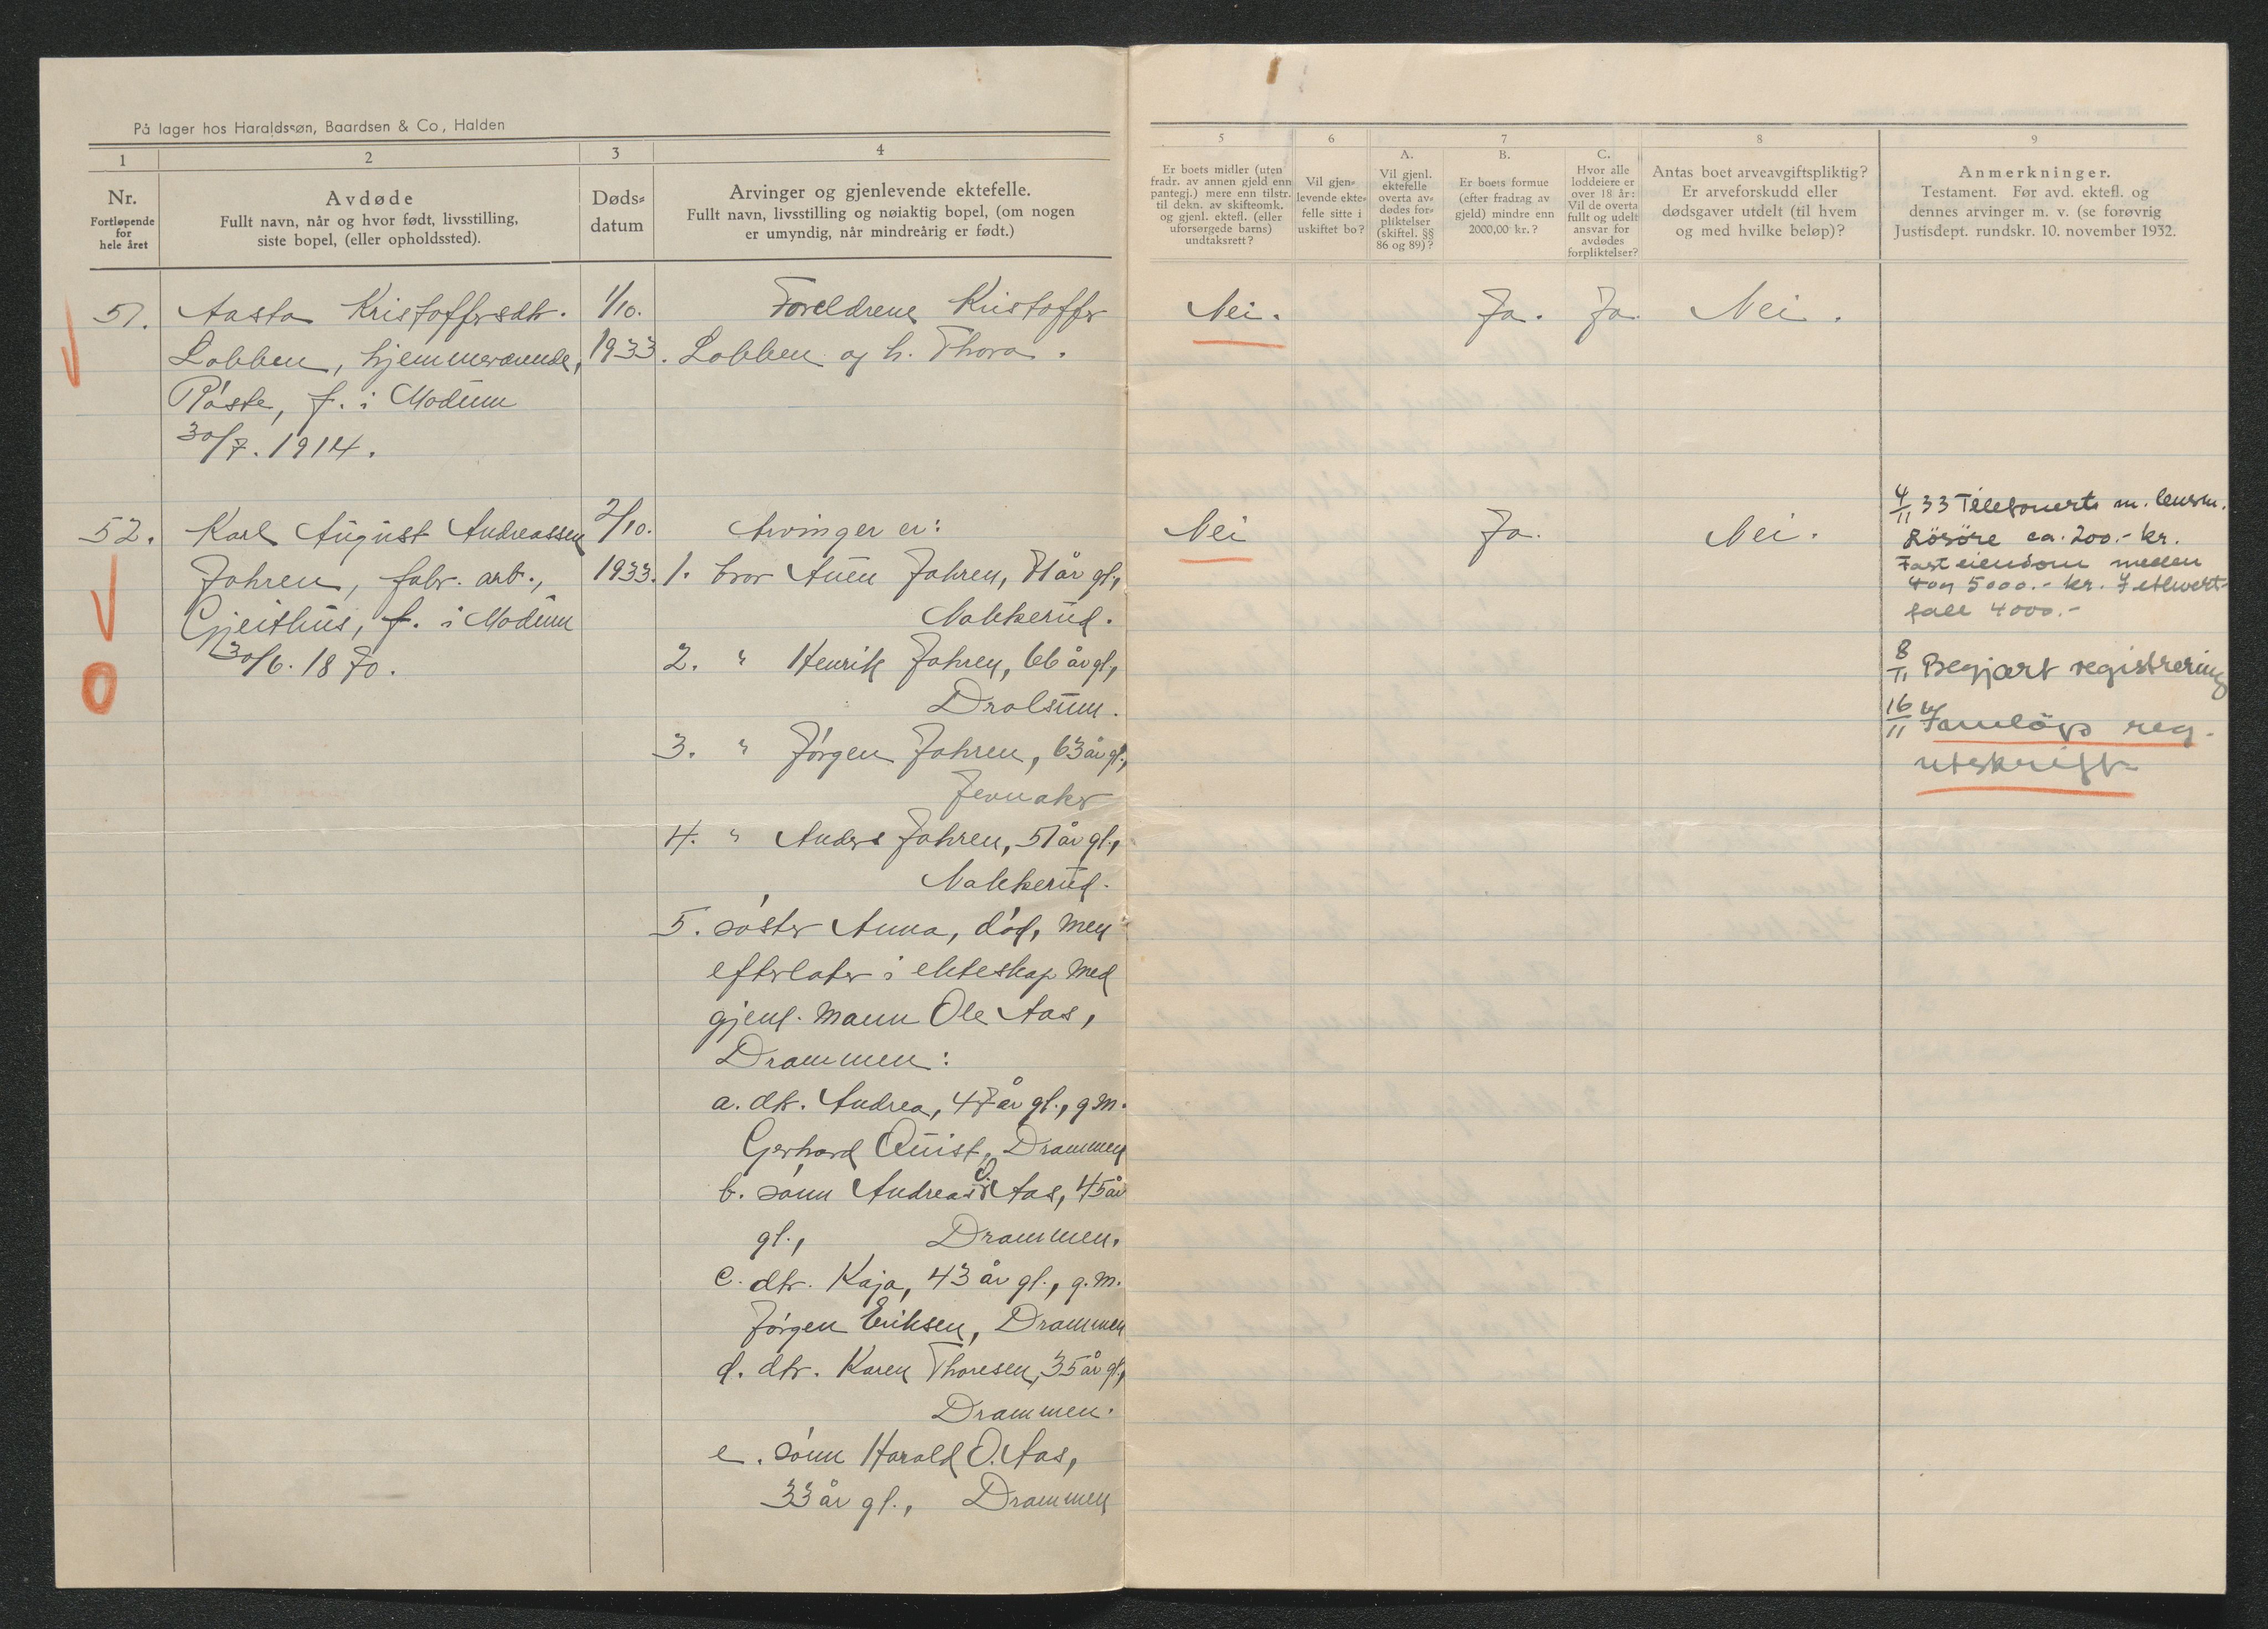 På lager hos Haraldssøn, Baardsen & Co, Halden
1
2
3
4
Nr.
Fortløpende
for
hele året
Avdøde
Fullt navn, når og hvor født, livsstilling,
siste bopel, (eller opholdssted).
Døds-
datum
Arvinger og gjenlevende ektefelle.
Fullt navn, livsstilling og nøiaktig bopel, (om nogen
er umyndig, når mindreårig er født.)
5
6
7
8
9
Er boets midler (uten
fradr. av annen gjeld enn
pantegj.) mere enn tilstr.
til dekn. av skifteomk.
og gjenl. ektefl. (eller
uforsørgede barns)
undtaksrett?
Vil gjen-
levende ekte-
felle sitte i
uskiftet bo?
A.
Vil gjenl.
ektefelle
overta av-
dødes for-
pliktelser
(skiftel. §§
86 og 89)?
B.
Er boets formue
(efter fradrag av
gjeld) mindre enn
2000,00 kr.?
C.
Hvor alle
loddeiere er
over 18 år:
Vil de overta
fullt og udelt
ansvar for
avdødes
forpliktelser?
Antas boet arveavgiftspliktig?
Er arveforskudd eller
dødsgaver utdelt (til hvem
og med hvilke beløp)?
Anmerkninger.
Testament. Før avd. ektefl. og
dennes arvinger m. v. (se forøvrig
Justisdept. rundskr. 10. november 1932.
51. Aasta Kristoffersdtr.
Lobben, hjemmeværende,
Påste, f. i Modum
30/7. 1914.
1/10.
1933.
Foreldrene Kristoffer
Lobben og h. Thora.
Nei.
Ja.
Ja
Nei.
52. Karl August Andreassen
Jahren, fabr. arb.,
Gjeithus, f. i Modum
30/6. 1870.
2/10.
1933.
Arvinger er:
1. bror Auen Jahren, 71 år gl.,
Nakkerud.
2. " Henrik Jahren, 66 år gl.,
Dralsum.
3. " Jørgen Jahren, 63 år gl.,
Jevnaker
4. " Anders Jahren, 51 år gl.,
Nakkerud.
5. søster Anna, død, men
efterlater i ekteskap med
gjenl. mann Ole Aas,
Drammen:
a. dtr. Andrea, 47 år gl., g.m.
Gerhard Quist, Drammen
b. sønn Andreas O. Aas, 45 år
gl., Drammen.
c. dtr. Kaja, 43 år gl., g.m.
Jørgen Eriksen, Drammen
d. dtr. Karen Thoresen, 35 år gl.,
Drammen.
e. sønn Harald O. Aas,
33 år gl., Drammen
Nei
Ja.
Nei.
4/11 33 Telefonerte m. lensm.
Løsøre ca. 200.- kr.
Fast eiendom mellem
4 og 5000.- kr. I ethvert
fall 4000.-
8/11 Begjært registrering
16/11
reg.
utskrift